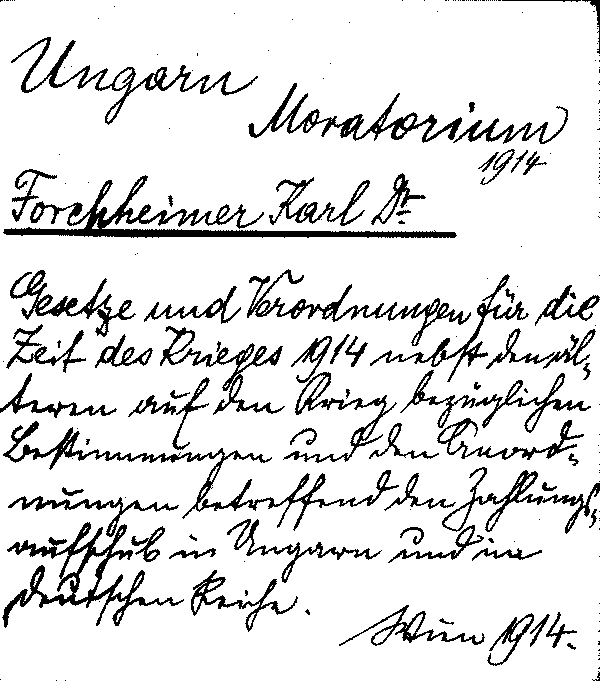 Ungarn
Moratorium
1914
Forchheimer Karl Dr.
Gesetze und Verordnungen für die
Zeit des Krieges 1914 nebst den äl-
teren auf den Krieg bezüglichen
Bestimmungen und den Anord-
nungen betreffend den Zahlungs-
aufschub in Ungarn und im
Deutschen Reiche.
Wien 1914.